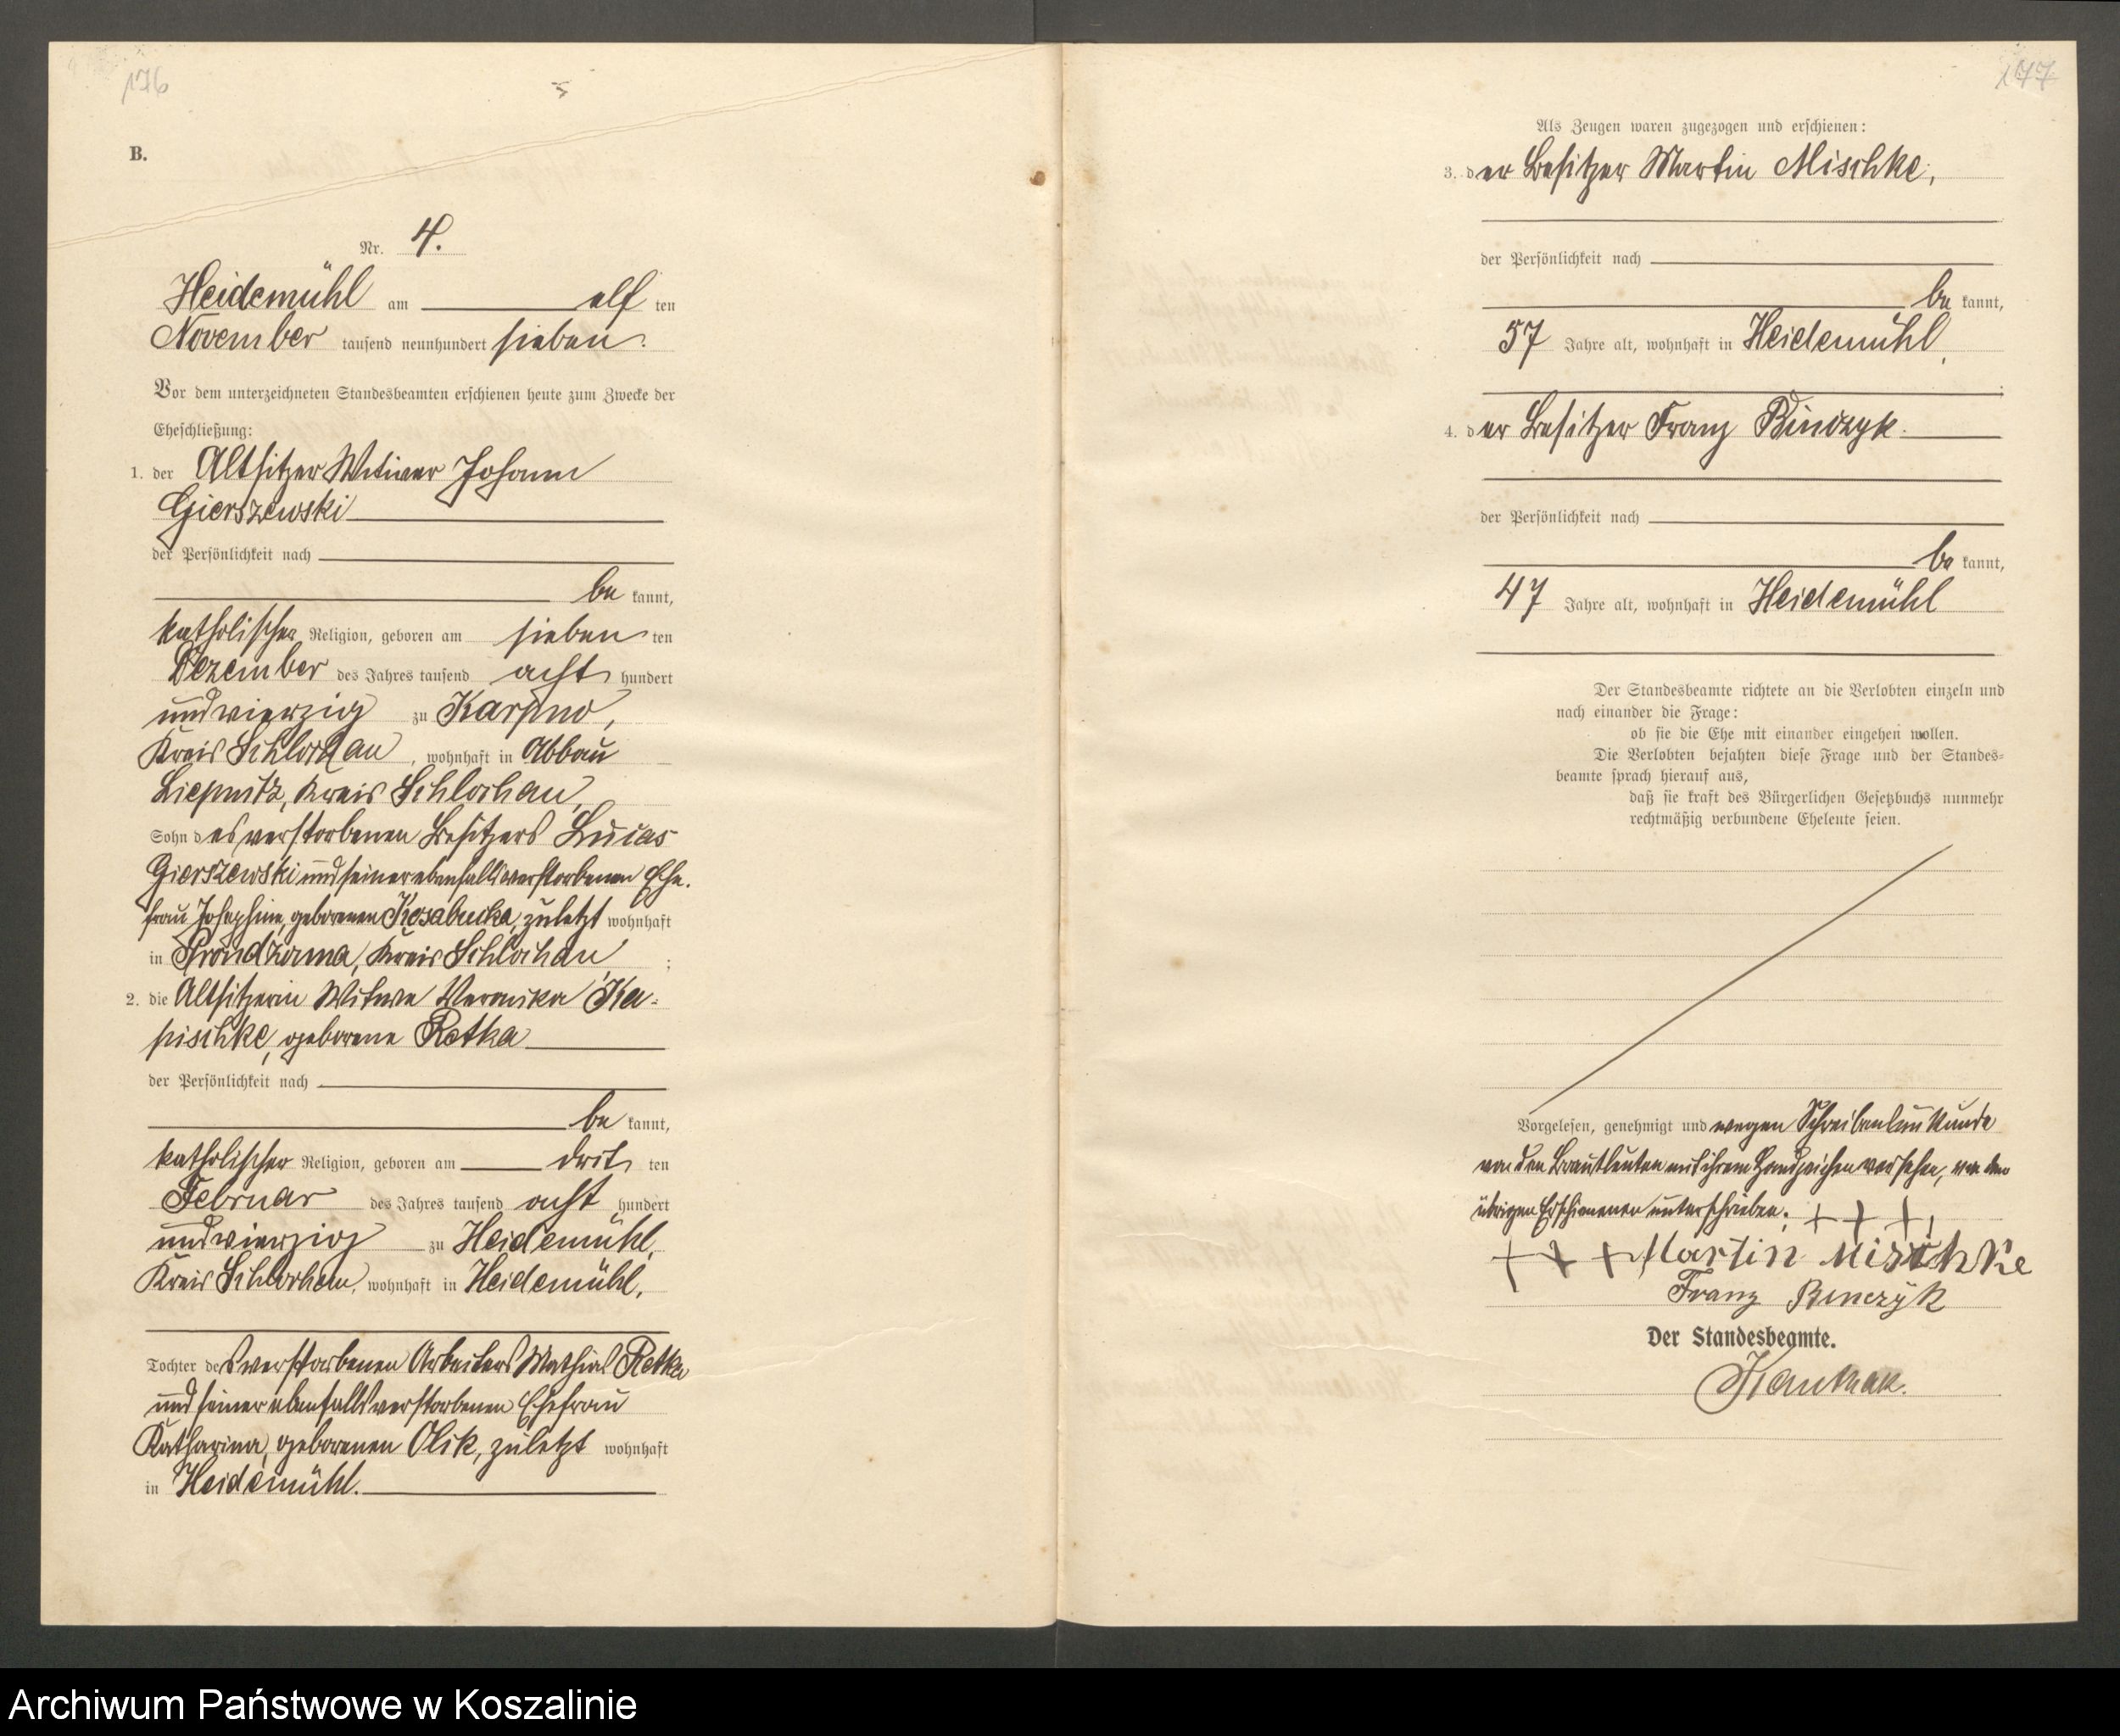 176
B.
Nr. 4.
Heidemühl am elf ten
November tausend neunhundert sieben.
Vor dem unterzeichneten Standesbeamten erschienen heute zum Zwecke der
Eheschließung:
1. der Altsitzer Witwer Johann
Gierszewski
der Persönlichkeit nach
be kannt,
katholischer Religion, geboren am sieben ten
Dezember des Jahres tausend acht hundert
undvierzig zu Karpno,
Kreis Schlochau, wohnhaft in Abbau
Liepnitz, Kreis Schlochau,
Sohn des verstorbenen Besitzers Lucas
Gierszewski und seiner ebenfalls verstorbenen Ehe-
frau Josephine, geborenen Kosabucka, zuletzt wohnhaft
in Prondzonna, Kreis Schlochau;
2. die Altsitzerin Witwe Veronika Ka-
pischke, geborene Retka
der Persönlichkeit nach
be kannt,
katholischer Religion, geboren am drit ten
Februar des Jahres tausend acht hundert
undvierzig zu Heidemühl,
Kreis Schlochau, wohnhaft in Heidemühl,
Tochter des verstorbenen Arbeiters Mathias Retka
und seiner ebenfalls verstorbenen Ehefrau
Katharina, geborenen Olik, zuletzt wohnhaft
in Heidemühl.
177
Als Zeugen waren zugezogen und erschienen:
3. der Besitzer Martin Mischke,
der Persönlichkeit nach
be kannt,
57 Jahre alt, wohnhaft in Heidemühl,
4. der Besitzer Franz Binczyk.
der Persönlichkeit nach
be kannt,
47 Jahre alt, wohnhaft in Heidemühl
Der Standesbeamte richtete an die Verlobten einzeln und
nach einander die Frage:
ob sie die Ehe mit einander eingehen wollen.
Die Verlobten bejahten diese Frage und der Standes-
beamte sprach hierauf aus,
daß sie kraft des Bürgerlichen Gesetzbuchs nunmehr
rechtmäßig verbundene Eheleute seien.
Vorgelesen, genehmigt und wegen Schreibensunkunde
von den Brautleuten mit ihrem Handzeichen versehen, von den
übrigen Erschienenen unterschrieben. + + +,
+ + + Martin Mischke
Franz Binczyk
Der Standesbeamte.
Archiwum Państwowe w Koszalinie